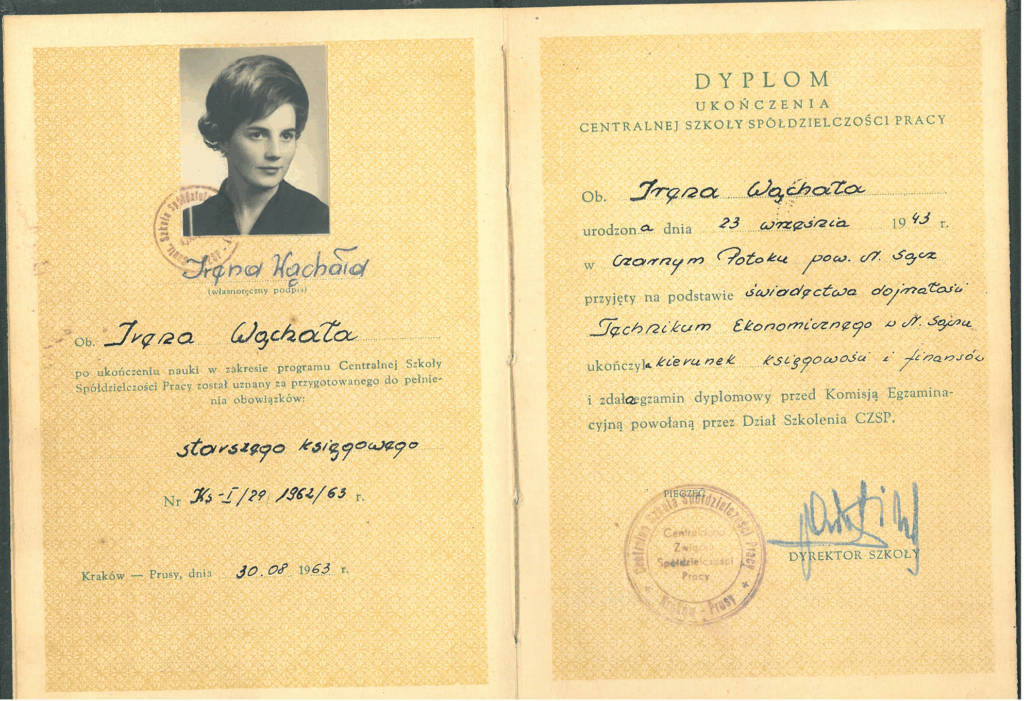 Irena Wąchała
(własnoręczny podpis)
Ob. Irena Wąchała
po ukończeniu nauki w zakresie programu Centralnej Szkoły
Spółdzielczości Pracy został uznany za przygotowanego do pełnie-
nia obowiązków:
starszego księgowego
Nr Ks-I/29 1962/63 r.
Kraków — Prusy, dnia 30.08 1963 r.
DYPLOM
UKOŃCZENIA
CENTRALNEJ SZKOŁY SPÓŁDZIELCZOŚCI PRACY
Ob. Irena Wąchała
urodzona dnia 23 września 1943 r.
w Czarnym Potoku pow. N. Sącz
przyjęty na podstawie świadectwa dojrzałości
Technikum Ekonomicznego w N. Sączu
ukończyła kierunek księgowości i finansów
i zdała egzamin dyplomowy przed Komisją Egzamina-
cyjną powołaną przez Dział Szkolenia CZSP.
PIECZĘĆ
Centralna Szkoła Spółdzielczości Pracy
Kraków - Prusy
Związku
Spółdzielczości
Pracy
DYREKTOR SZKOŁY